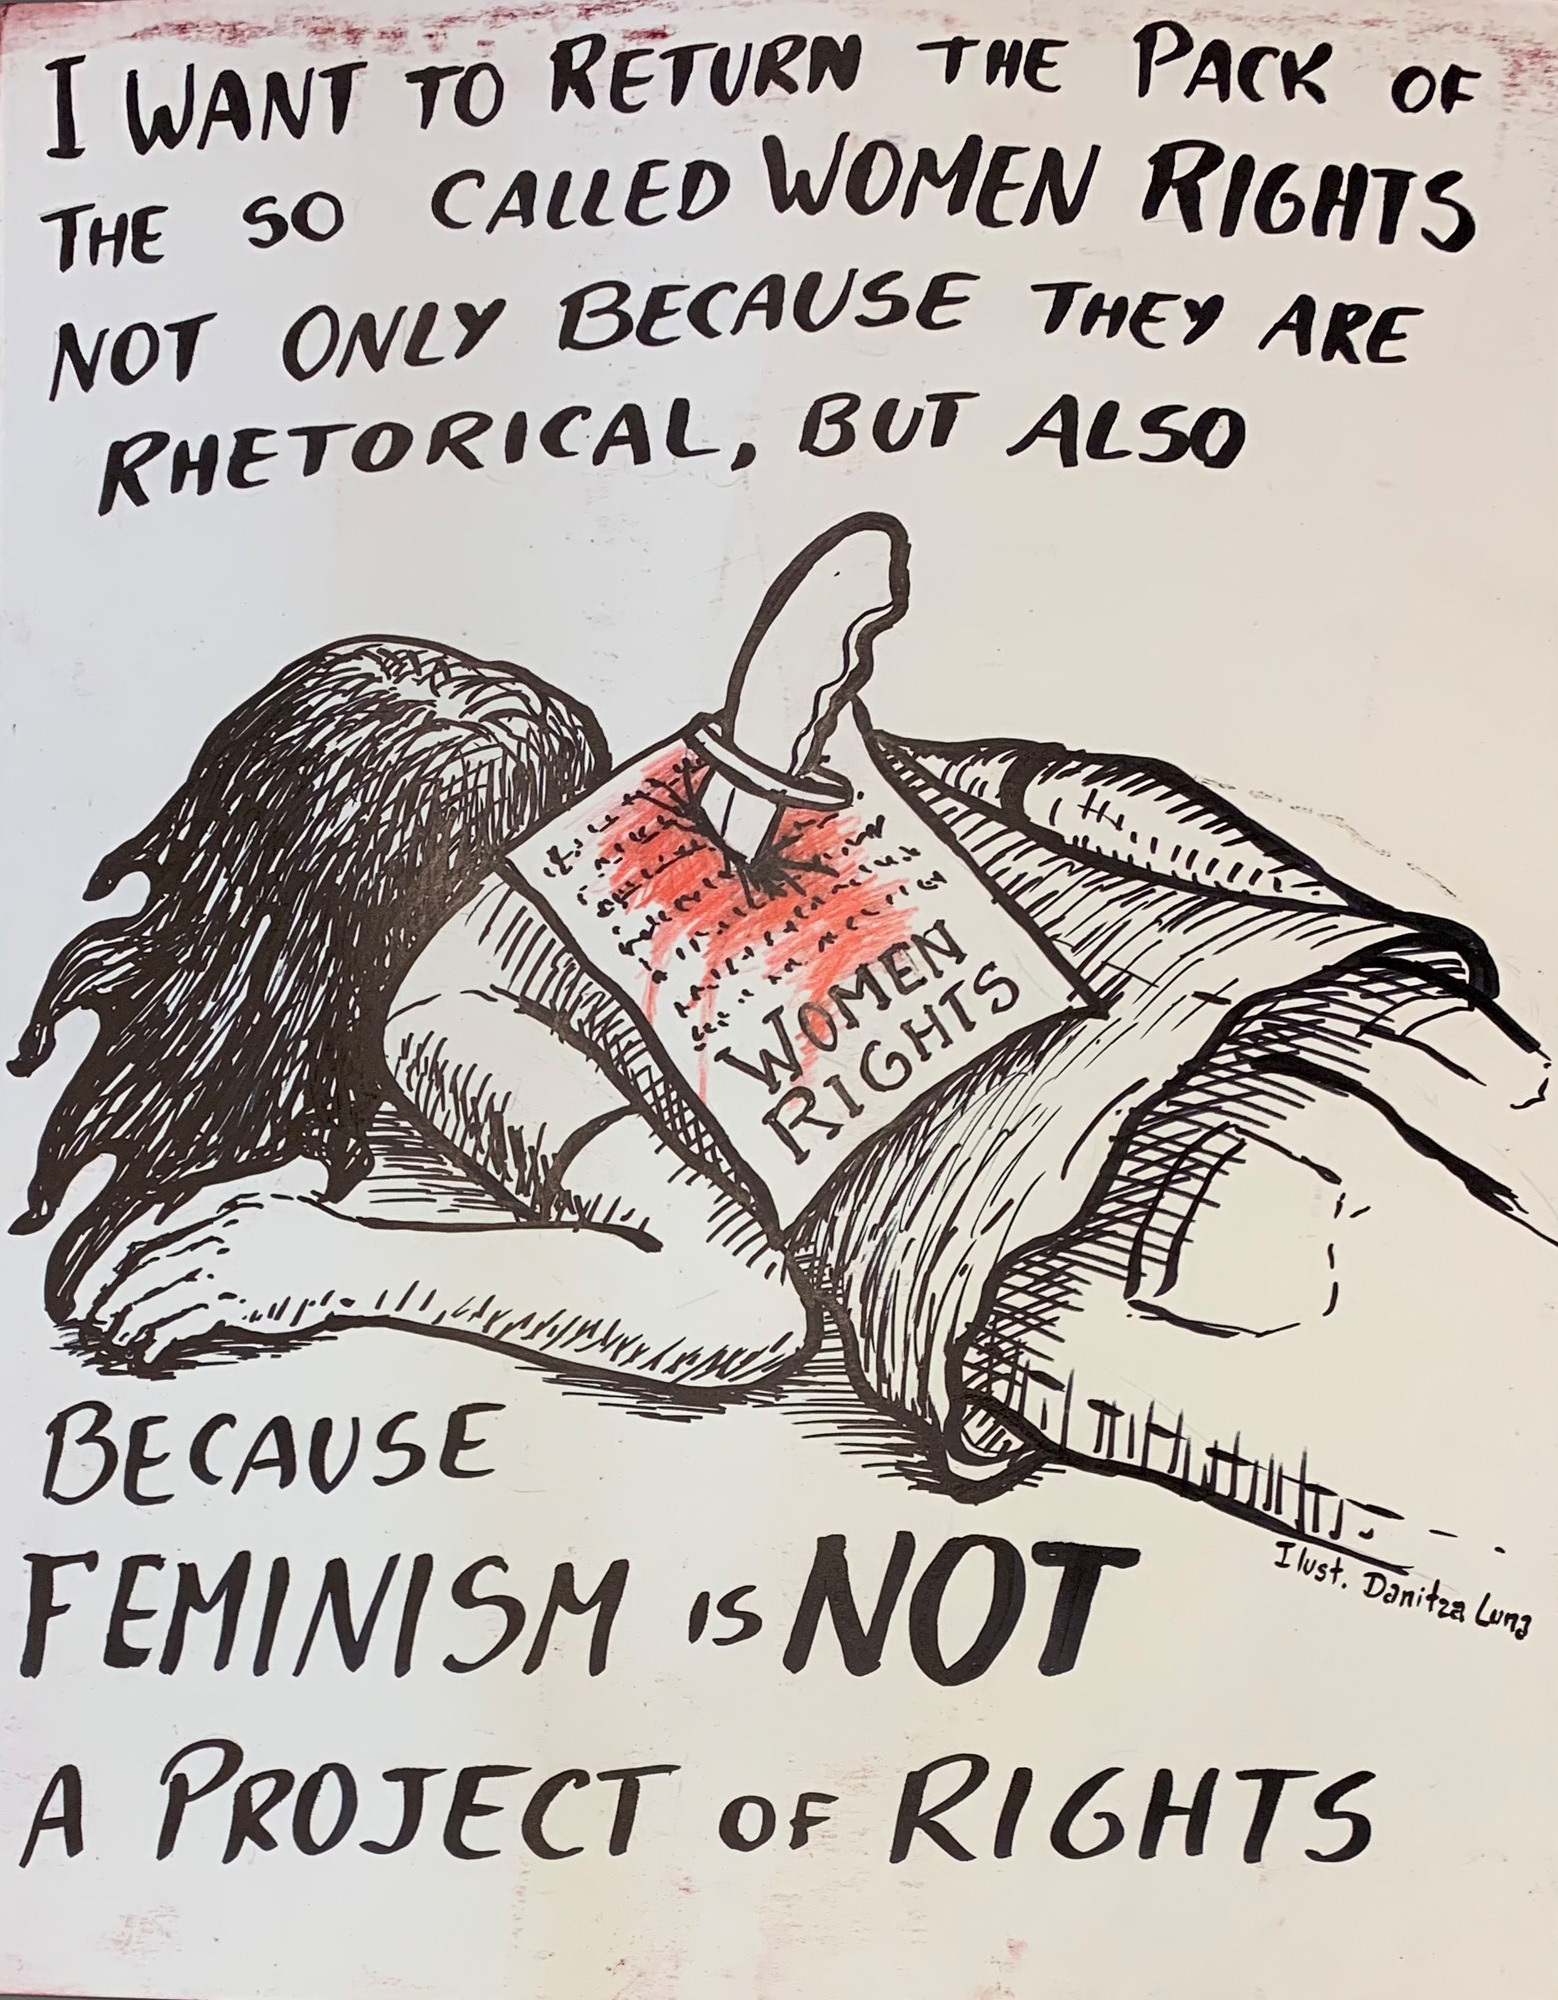 I WANT TO RETURN THE PACK OF
THE SO CALLED WOMEN RIGHTS
NOT ONLY BECAUSE THEY ARE
RHETORICAL, BUT ALSO
WOMEN
RIGHTS
BECAUSE
FEMINISM IS NOT
Ilust. Danitza Luna
A PROJECT OF RIGHTS